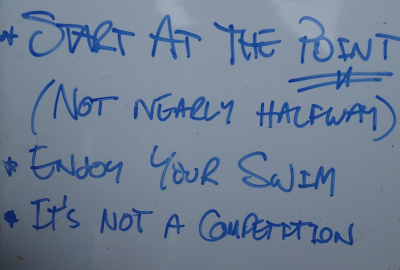 * START AT THE POINT
(NOT NEARLY HALFWAY)
* ENJOY YOUR SWIM
* IT'S NOT A COMPETITION